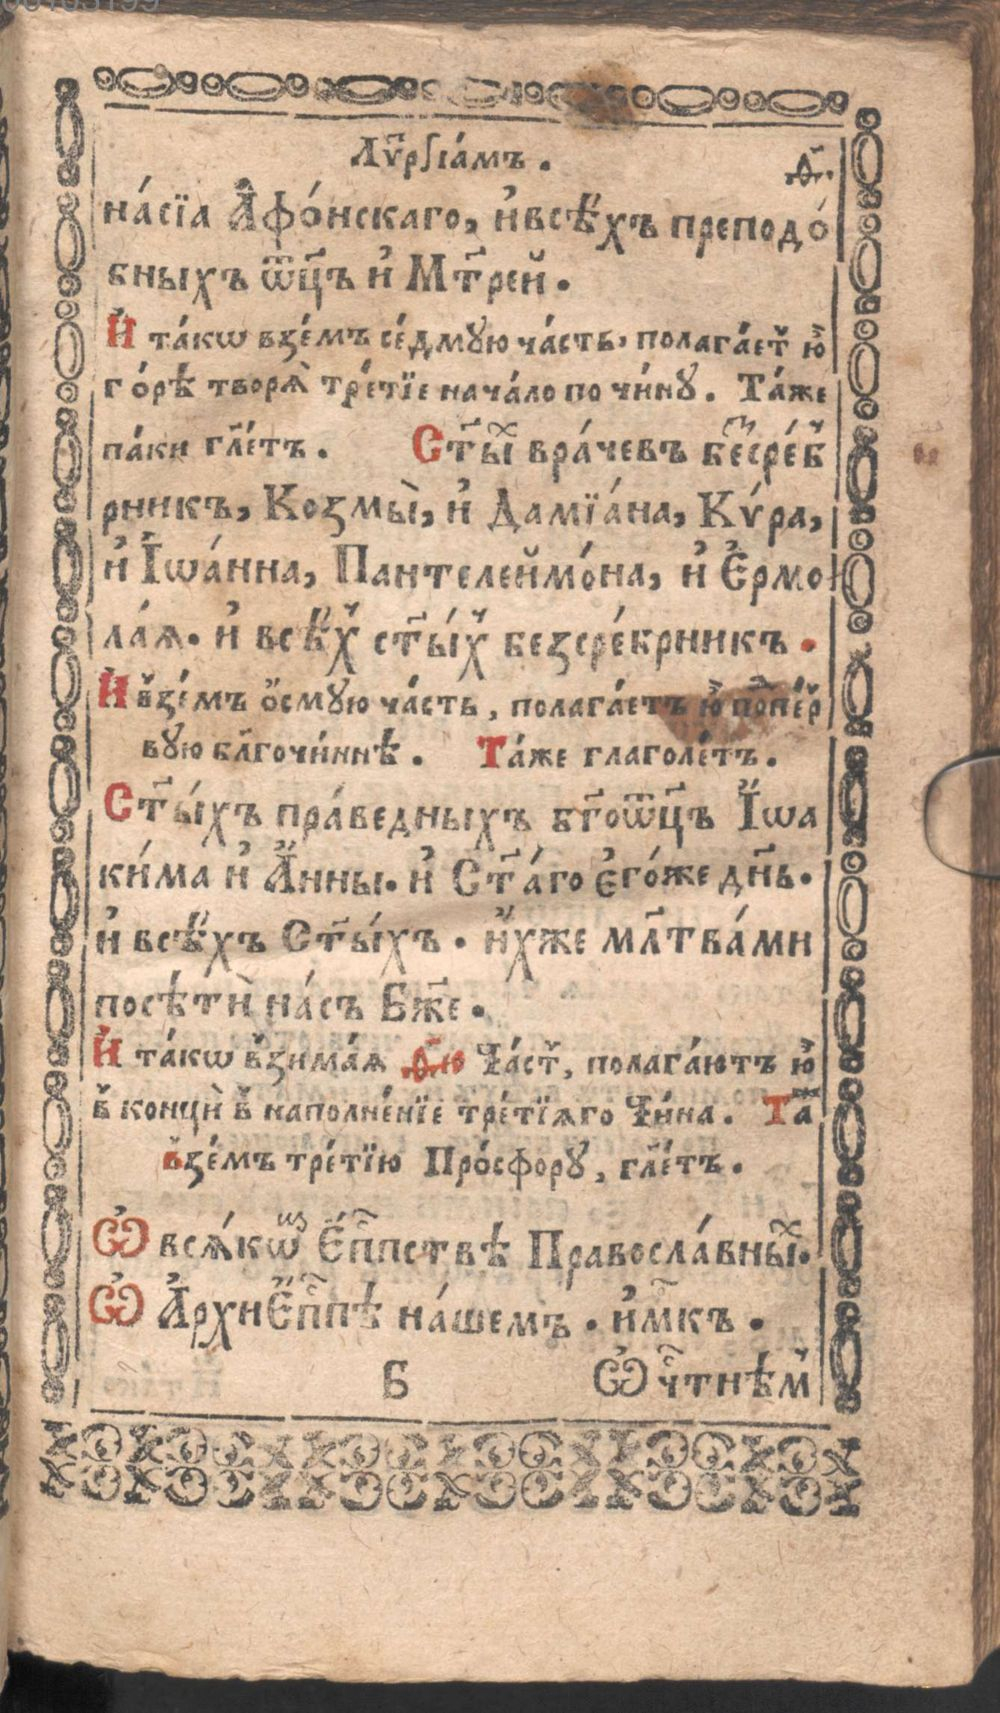 на́сїа А҆фо́нскаго, и҆всѣ́хъ преподо́
бныхъ ѿц҃ъ и҆ Мт҃рей.
И҆ та́кѡ взе́мъ се́дмꙋю ча́сть, полага́ет ю҆̀
го́рѣ творѧ̀ тре́тїе нача́ло по чи́нꙋ. Та́же
па́ки гл҃етъ. Ст҃ы́ⷯ вра́чевъ бесре́б
рникъ, Козмы̀, и҆ Дамїа́на, Кѵ́ра,
и҆ І҆ѡа́нна, Пантелеймо́на, и҆ Е҆рмо
ла́ѧ. и҆ всѣ́х ст҃ы́х безсре́крникъ.
И҆ взе́мъ о҆смꙋю ча́сть, полага́етъ ю҆̀ попе́р
вꙋю бл҃гочи́ннѣ. Та́же глаголе́тъ.
Ст҃ы́хъ пра́ведныхъ бг҃оѿц҃ъ І҆ѡа
ки́ма и҆ А҆́нны. и҆ Ст҃а́го є҆го́же дн҃ь.
и҆ всѣ́хъ Ст҃ы́хъ. и҆́хже мл҃тва́ми
посѣтѝ на́съ Бж҃е.
И҆ та́кѡ взима́ѧ ѳ҃ю Ча́ст, полага́ютъ ю҆̀
в концѝ в наполне́нїе тре́тїѧго Чи́на. Та
взе́мъ тре́тїю Про́сфорꙋ, гл҃етъ.
Ѽ всѧ́кѡⷨ Е҆п҃пствѣ Правосла́вныⷯ.
Ѽ А҆рхиЕ҆п҃пѣ на́шемъ. и҆м҃къ.
Б Ѽ ч҃тнѣ́м